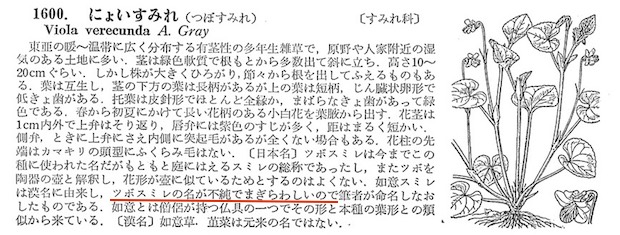 1600. にょいすみれ（つぼすみれ） 〔すみれ科〕
Viola verecunda A. Gray
東亜の暖～温帯に広く分布する有茎性の多年生雑草で，原野や人家附近の湿
気のある土地に多い．茎は緑色軟質で根もとから多数出て斜に立ち，高さ10～
20cmぐらい．しかし株が大きくひろがり，節々から根を出してふえるものもあ
る．葉は互生し，茎の下方の葉は長柄があるが上の葉は短柄，じん臓状卵形で
低きょ歯がある．托葉は皮針形でほとんど全縁か，まばらなきょ歯があって緑
色である．春から初夏にかけて長い花柄のある小白花を葉腋から出す．花茎は
1cm内外で上弁はそり返り，唇弁には紫色のすじが多く，距はまるく短かい．
側弁，ときに上弁にさえ内側に突起毛があるが全くない場合もある．花柱の先
端はカマキリの頭型にふくらみ毛はない．〔日本名〕ツボスミレは今までこの
種に使われた名だがもともと庭にはえるスミレの総称であったし，またツボを
陶器の壺と解釈し，花形が壺に似ているためとするのはよくない．如意スミレ
は漢名に由来し，ツボスミレの名が不純でまぎらわしいので筆者が命名しなお
したものである．如意とは僧侶が持つ仏具の一つでその形と本種の葉形との類
似から来ている．〔漢名〕如意草．菫菜は元来の名ではない．